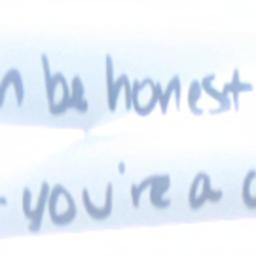 be honest
you're a